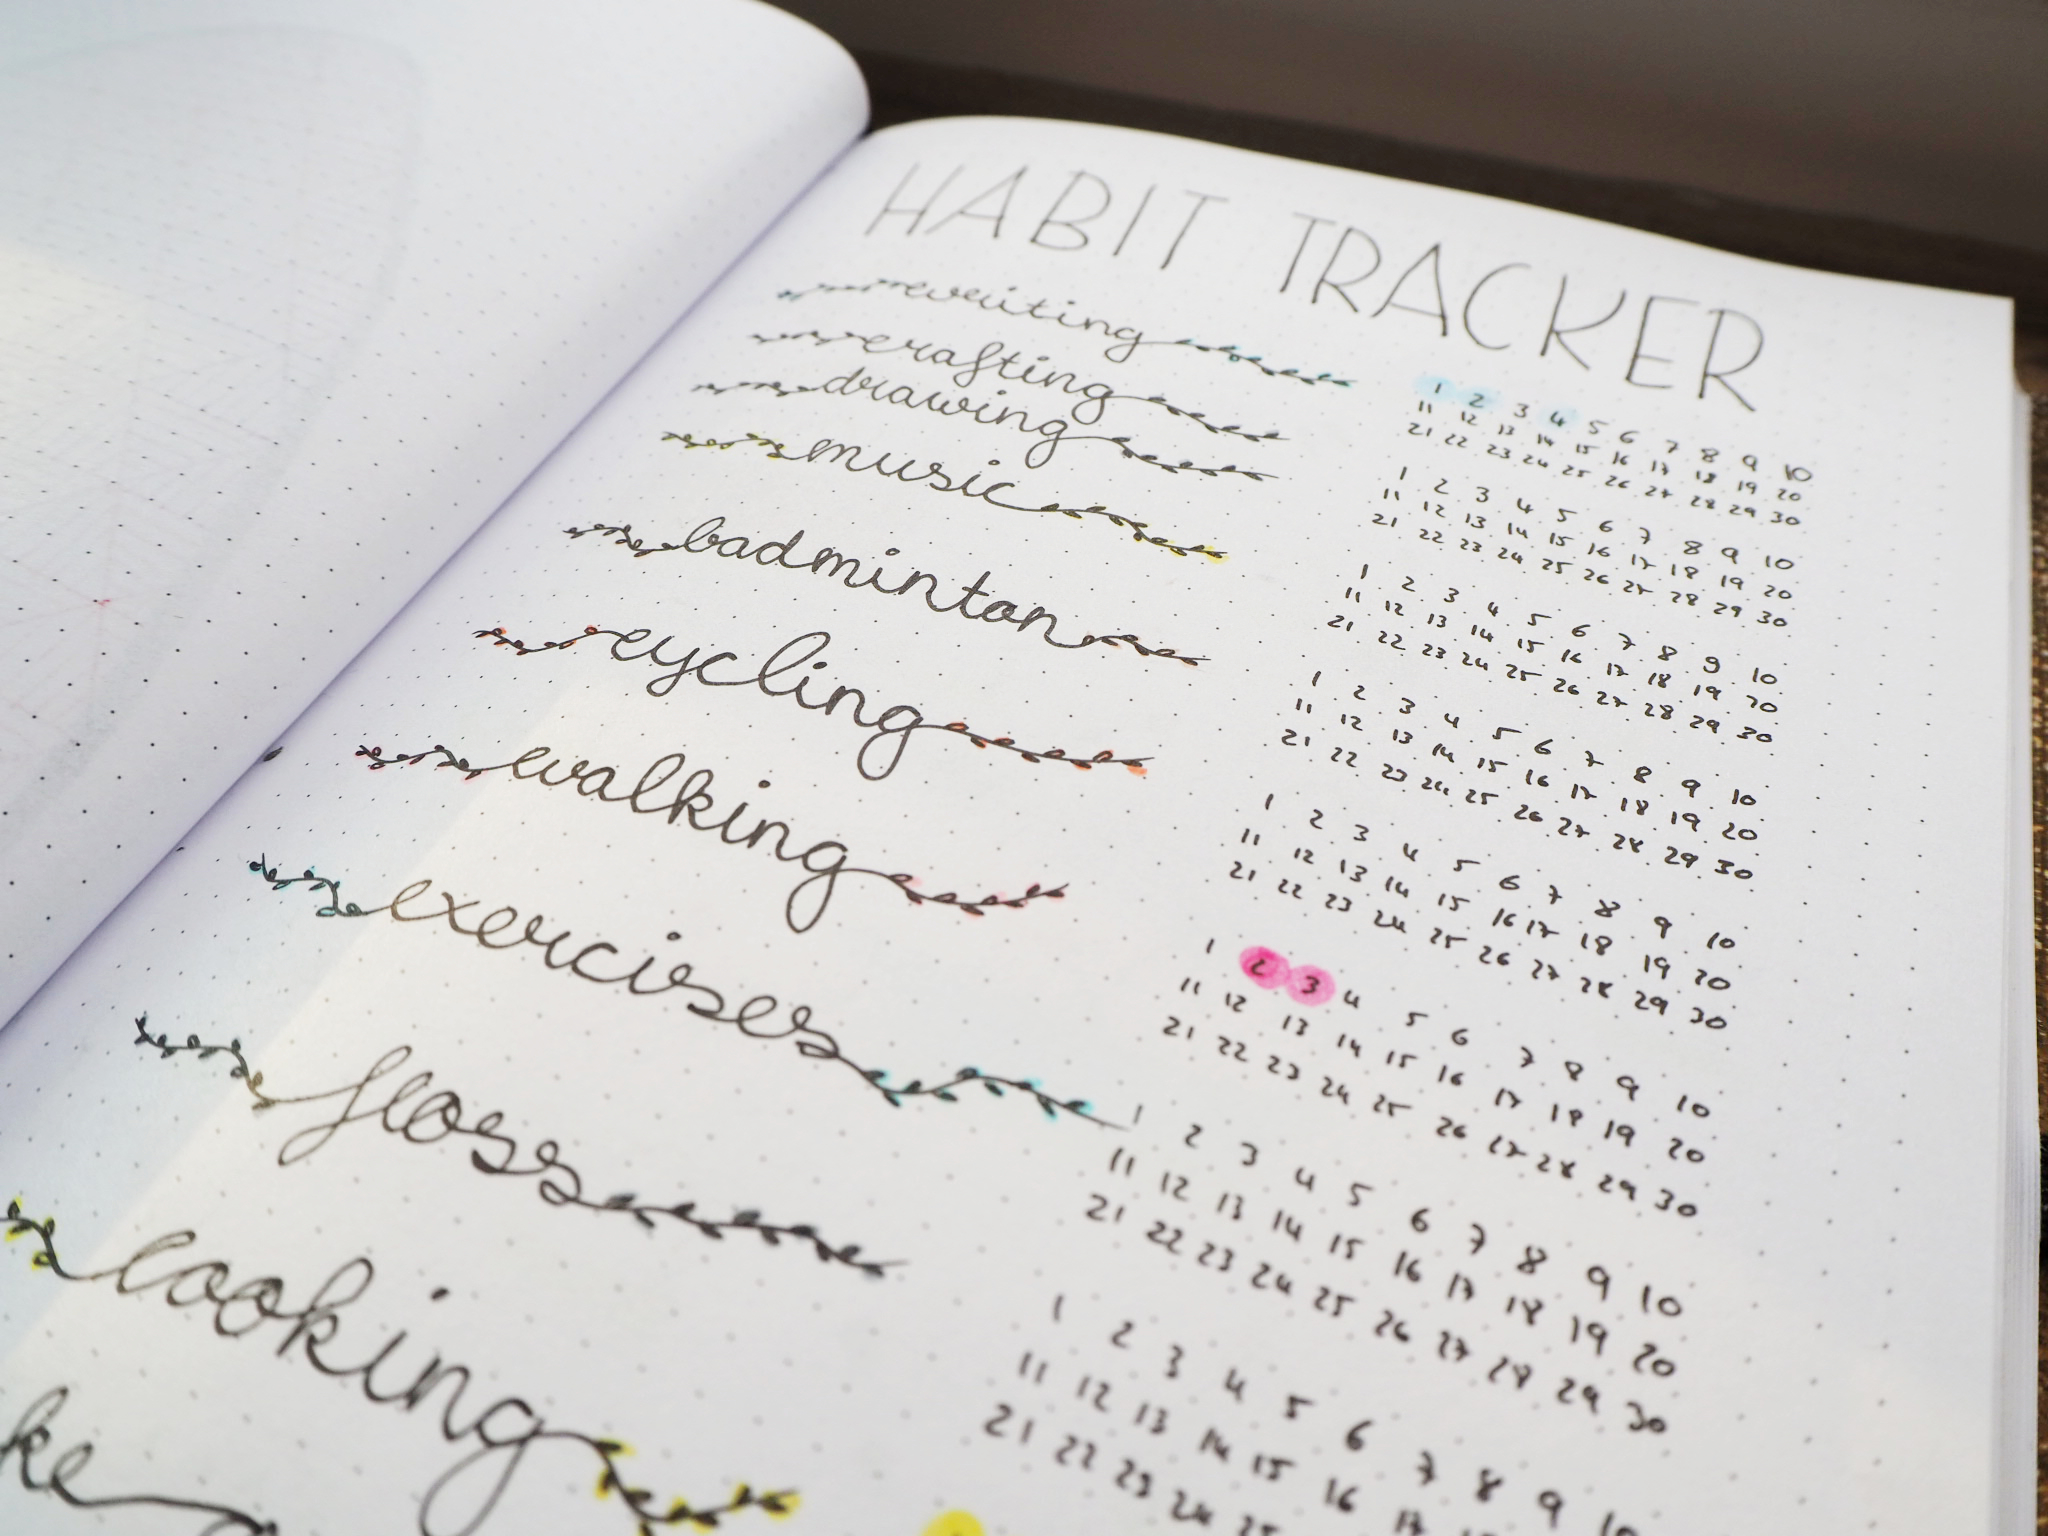 HABIT TRACKER
writing
crafting
drawing
music
badminton
cycling
walking
exercises
floss
cooking
ke
1 2 3 4 5 6 7 8 9 10
11 12 13 14 15 16 17 18 19 20
21 22 23 24 25 26 27 28 29 30
1 2 3 4 5 6 7 8 9 10
11 12 13 14 15 16 17 18 19 20
21 22 23 24 25 26 27 28 29 30
1 2 3 4 5 6 7 8 9 10
11 12 13 14 15 16 17 18 19 20
21 22 23 24 25 26 27 28 29 30
1 2 3 4 5 6 7 8 9 10
11 12 13 14 15 16 17 18 19 20
21 22 23 24 25 26 27 28 29 30
1 2 3 4 5 6 7 8 9 10
11 12 13 14 15 16 17 18 19 20
21 22 23 24 25 26 27 28 29 30
1 2 3 4 5 6 7 8 9 10
11 12 13 14 15 16 17 18 19 20
21 22 23 24 25 26 27 28 29 30
1 2 3 4 5 6 7 8 9 10
11 12 13 14 15 16 17 18 19 20
21 22 23 24 25 26 27 28 29 30
1 2 3 4 5 6 7 8 9 10
11 12 13 14 15 16 17
21 22 23 24 25